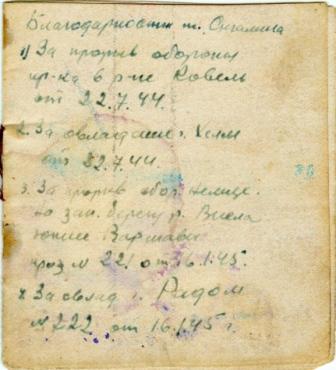 Благодарности т. Сталина
1) За прорыв обороны
пр-ка в р-не Ковель
от 22.7.44.
2. За овладение г. Хелм
от 22.7.44.
3. За прорыв обор. немце.
на зап. берегу р. Висла
южнее Варшавы
приз № 221 от 16.1.45.
4. За овлад г. Радом
№ 222 от 16.1.45 г.